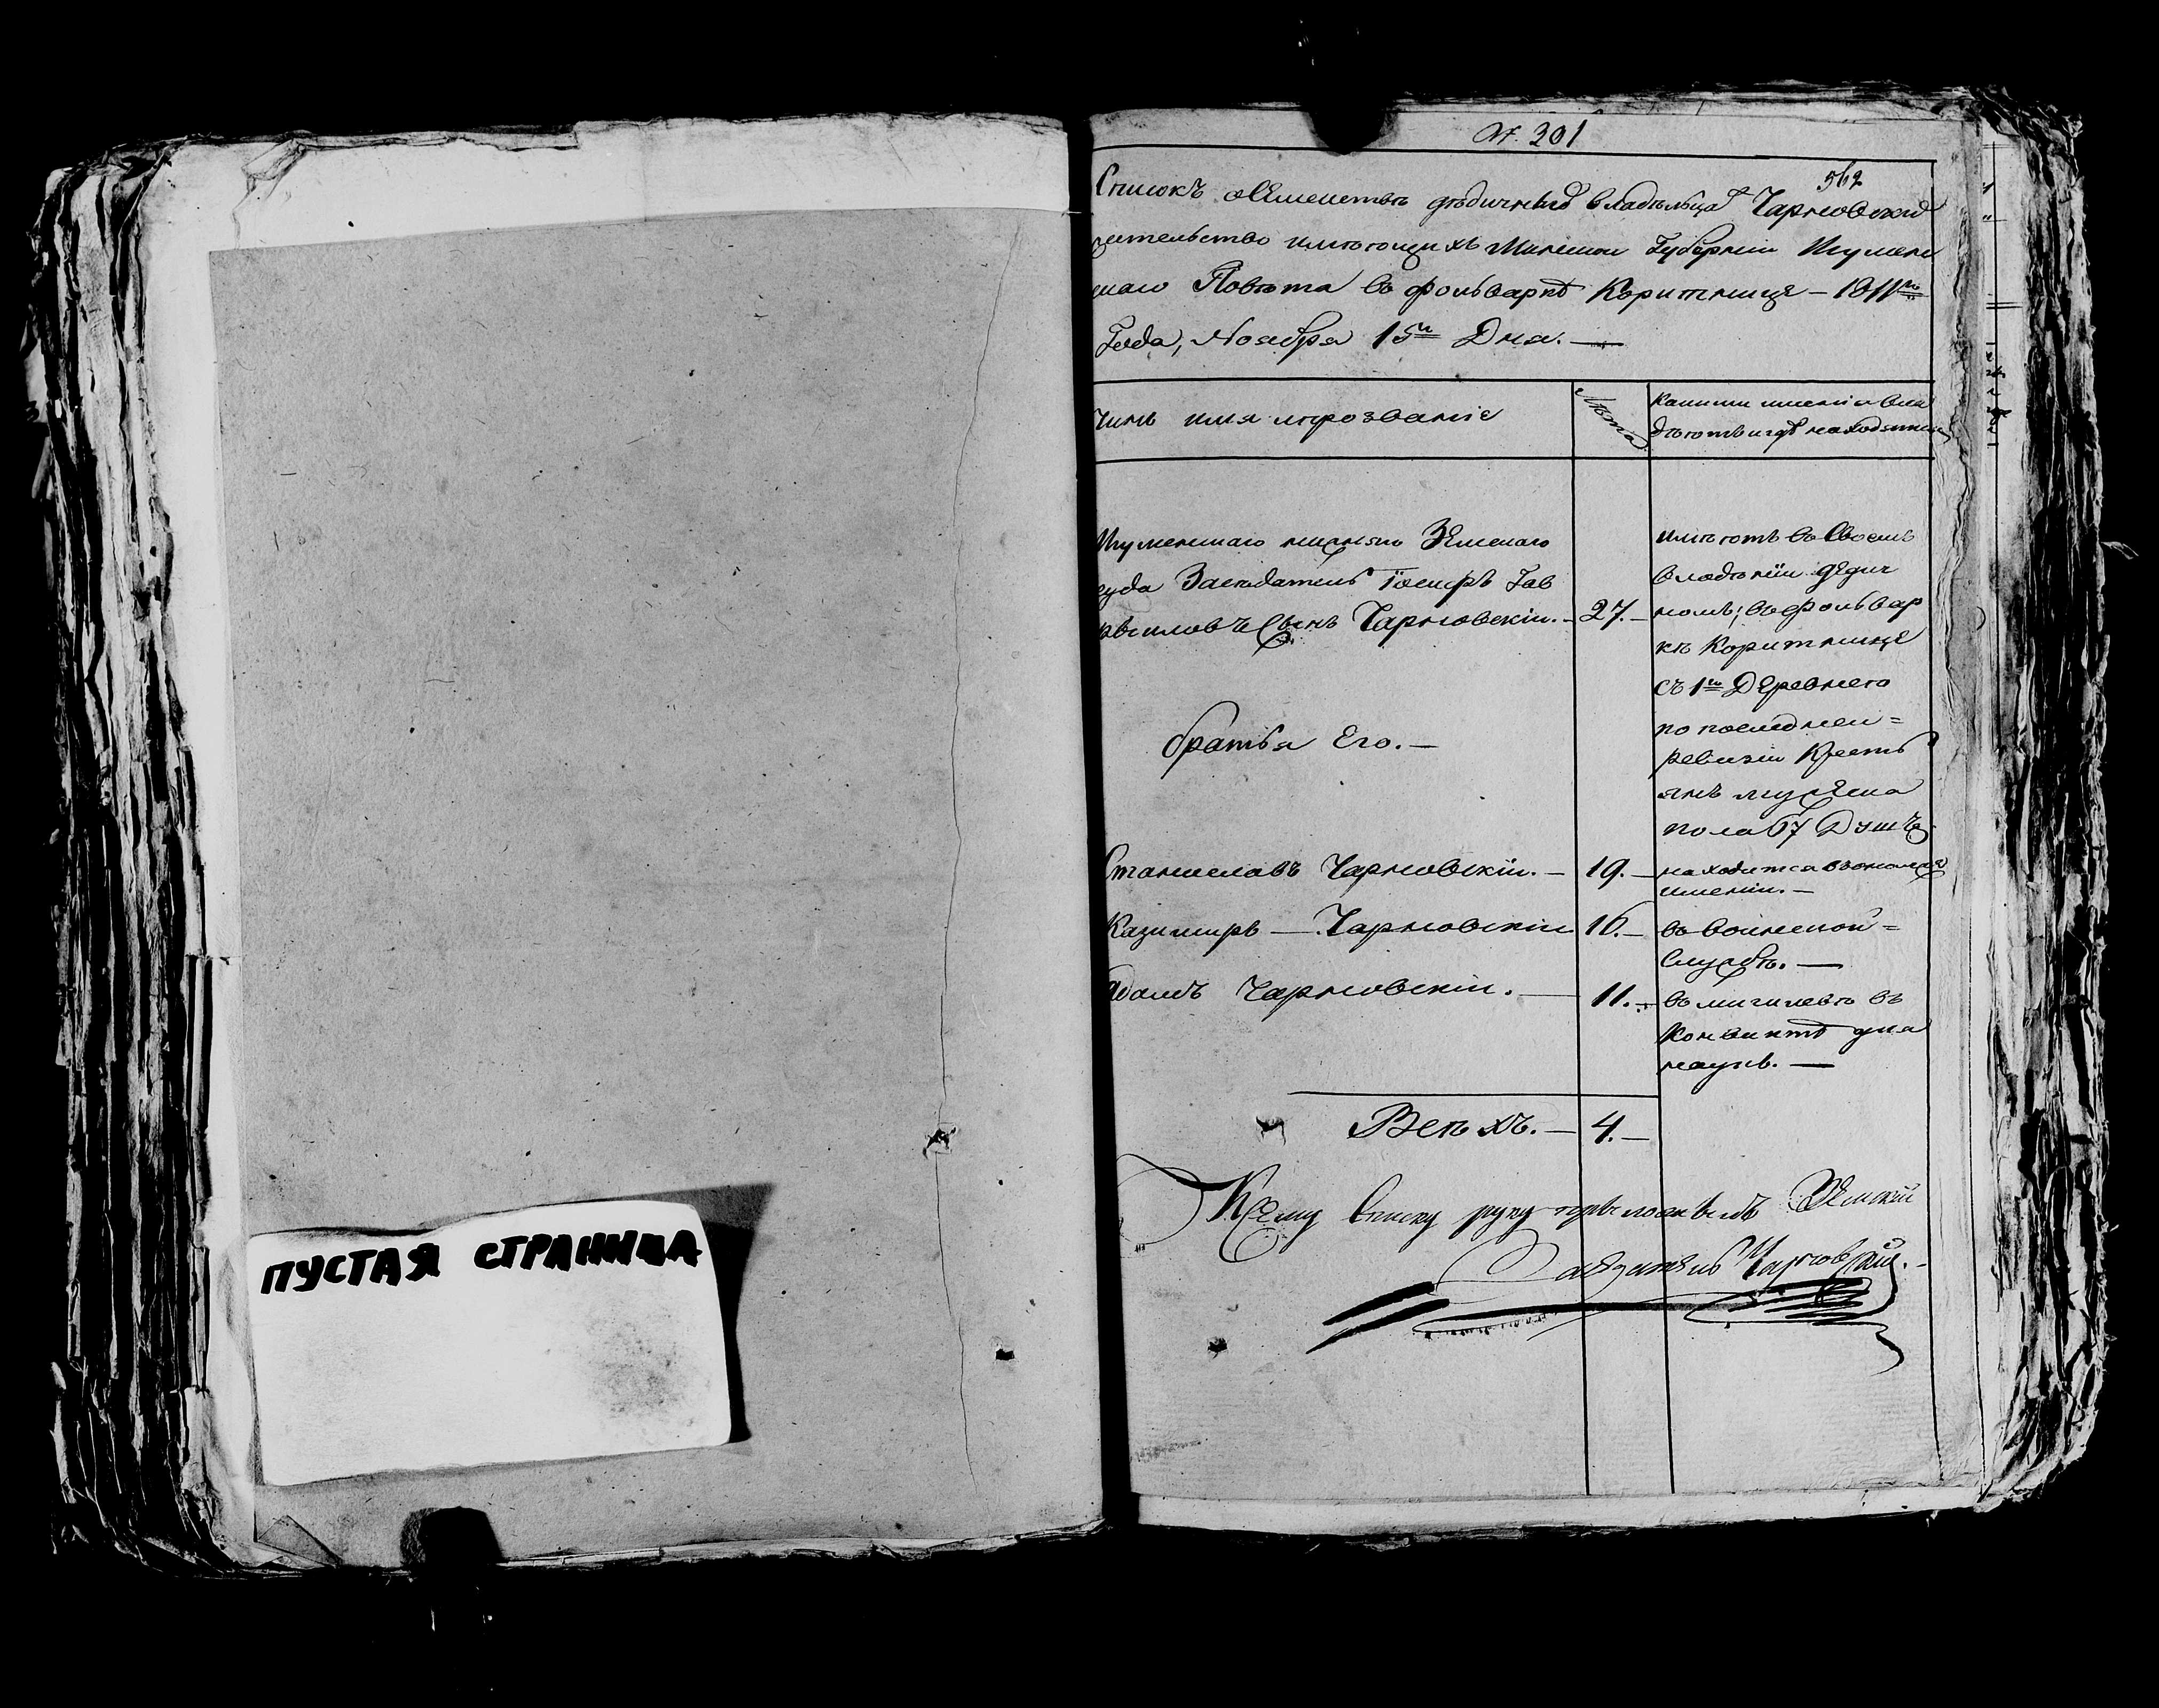 ПУСТАЯ СТРАНИЦА
№. 301
562
Списокъ о Семействѣ дѣдичныхъ владѣльца Чарновскихъ
жительство имѣющихъ Минской Губерніи Игумен
скаго Повѣта въ фольваркѣ Коритнице – 1811го
Года, Ноября 15го Дня. —
Чинъ имя ипрозваніе
Лѣта
Какими имѣнія вла
дѣютъ и гдѣ находятся
Игуменскаго нижняго Земскаго
суда Засѣдатель Іосифъ Гав
риловъ Сынъ Чарновскій. – 27. –
имѣютъ въ Своемъ
владѣніи дедич
номъ; въ фольвар
кѣ Коритнице
съ 1ю Деревнею
по последней =
ревизіи Кресть
янъ мужеска
пола 67 Душъ
братья Его. —
Станиславъ Чарновскій. – 19. – находится въ ономже
имении. –
Казимиръ — Чарновскій 16. – въ воинской =
Службѣ. —
Адамъ Чарновскій. — 11. – въ могилевѣ въ
Конвиктѣ для
наукъ. —
Всѣхъ. – 4. –
К Сему Списку руку приложилъ Земскій
Заседатель Чарновскій. –